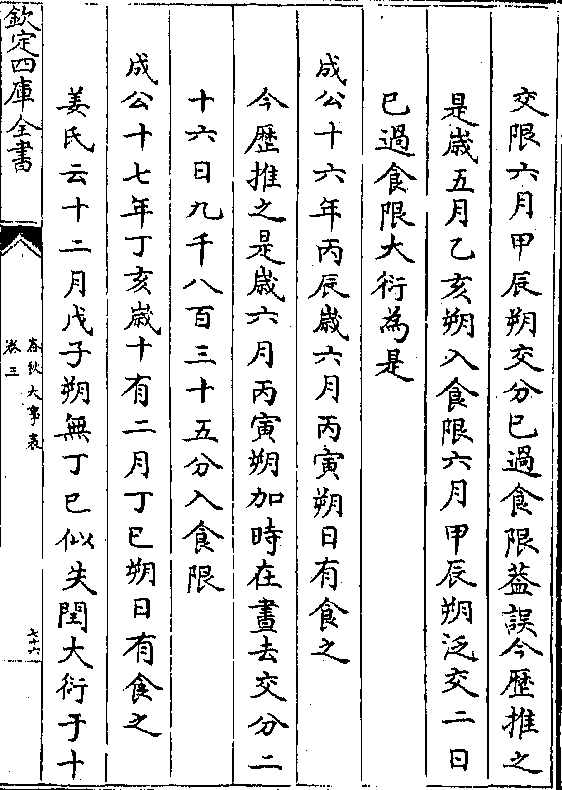 交限六月甲辰朔交分已過食限葢誤今歴推之
是歲五月乙亥朔入食限六月甲辰朔泛交二日
已過食限大衍為是
成公十六年丙辰歲六月丙寅朔日有食之
今歴推之是歲六月丙寅朔加時在晝去交分二
十六日九千八百三十五分入食限
成公十七年丁亥歲十有二月丁巳朔日有食之
姜氏云十二月戊子朔無丁巳似失閏大衍于十
欽定四庫全書
春秋大事表
卷三
七十六